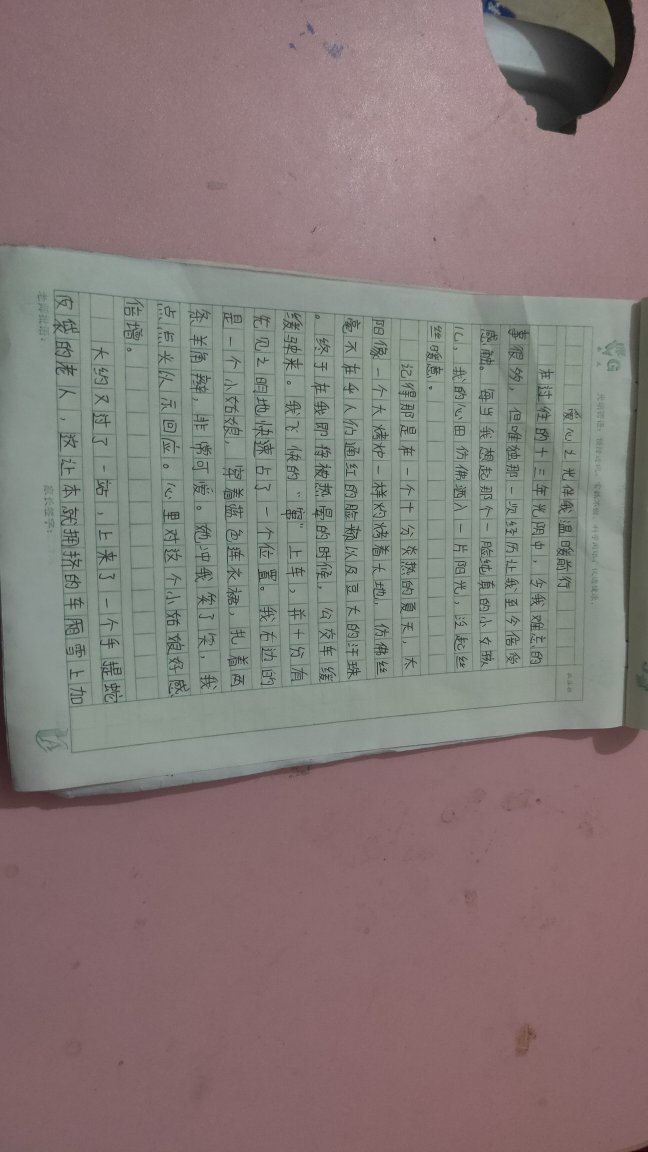 爱心之光伴我温暖前行
在过往的十三年光阴中，令我难忘的
事很多，但唯独那一次经历让我至今倍侵
感触。每当我想起那个一脸纯真的小女孩
儿，我的心田仿佛洒入一片阳光，泛起丝
丝暖意。
记得那是在一个十分炎热的夏天，太
阳像一个大烤炉一样灼烤着大地，仿佛丝
毫不在乎人们通红的脸颊以及豆大的汗珠
。终于在我即将被热晕的时候，公交车缓
缓驶来。我飞快的“窜”上车，并十分有
先见之明地快速占了一个位置。我右边的
是一个小姑娘，穿着蓝色连衣裙，扎着两
条羊角辫，非常可爱。她冲我笑了笑，我
点点头以示回应。心里对这个小姑娘好感
倍增。
大约又过了一站，上来了一个手提蛇
皮袋的老人，这让本就拥挤的车厢雪上加
老师批语：
家长签字：